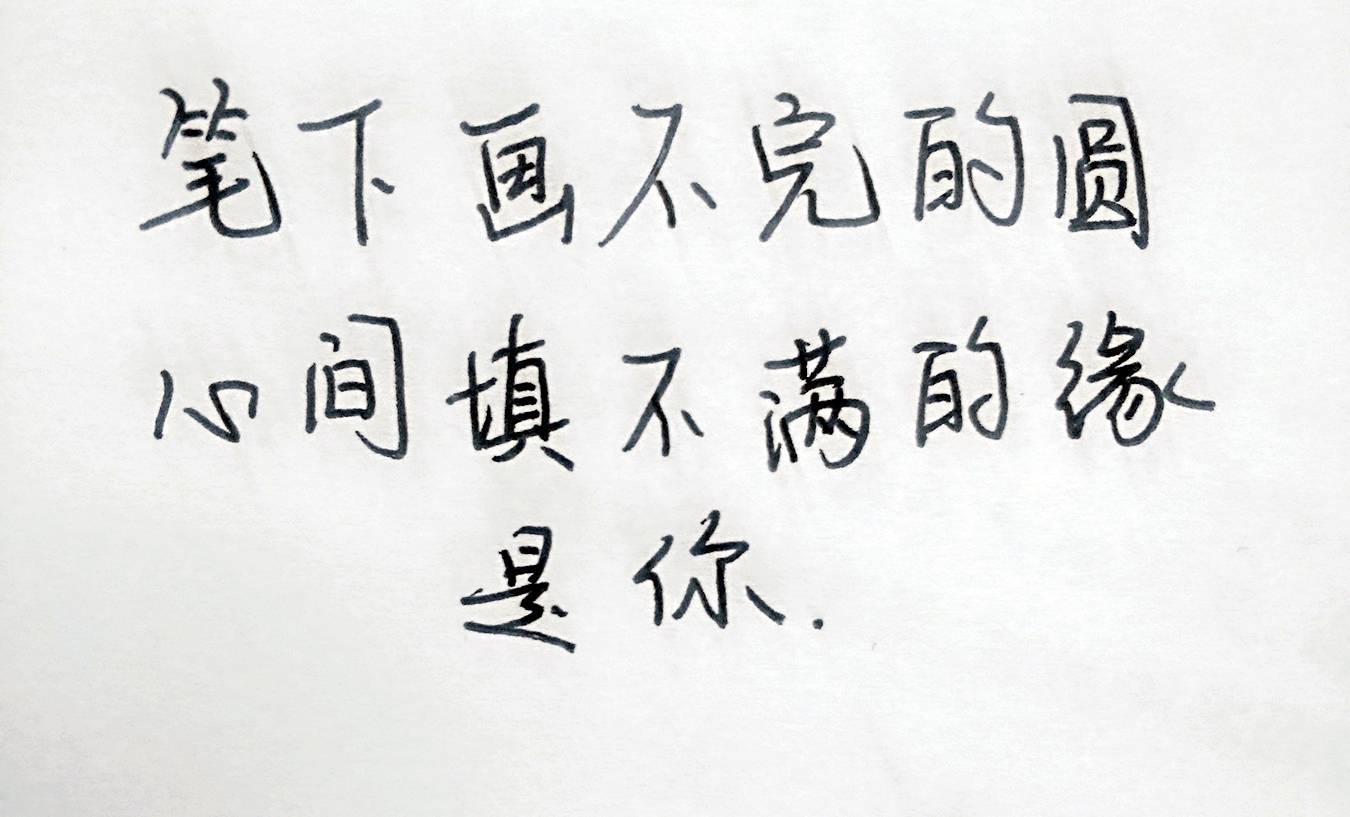 笔下画不完的圆
心间填不满的缘
是你.